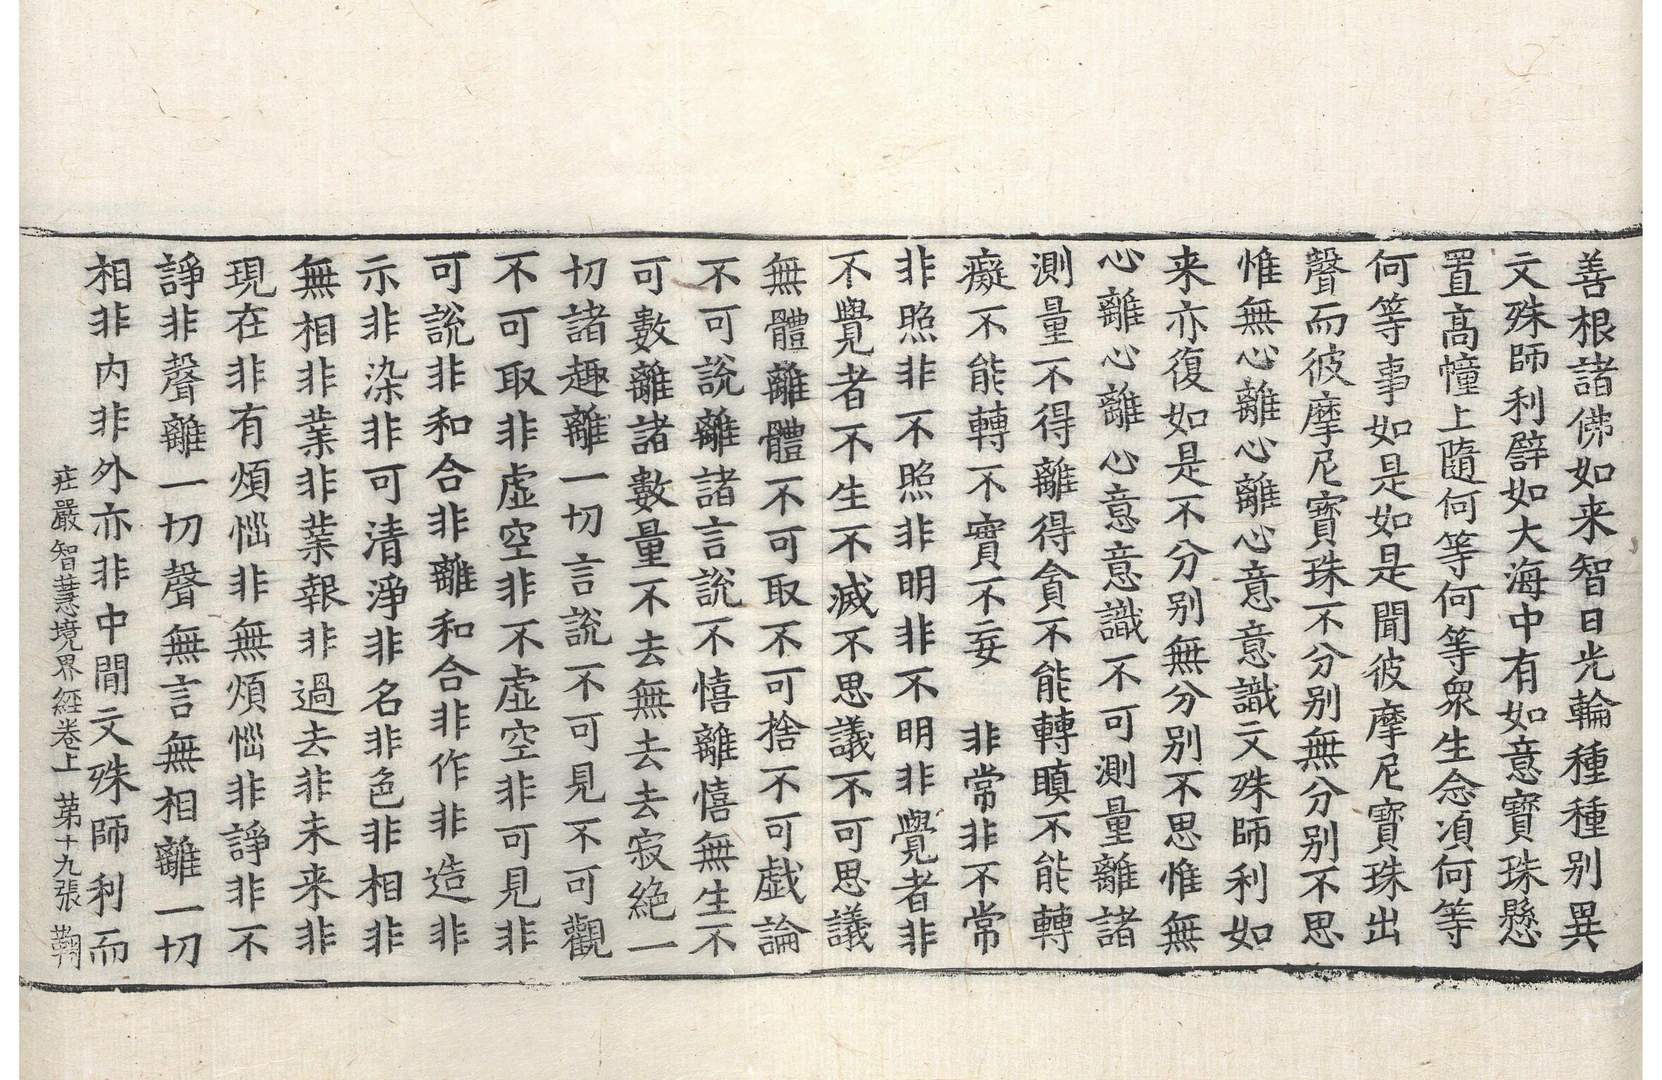 善根諸佛如来智日光輪種種别異
文殊師利譬如大海中有如意寶珠懸
置髙幢上隨何等何等衆生念湏何等
何等事如是如是聞彼摩尼寶珠出
聲而彼摩尼寶珠不分别無分别不思
惟無心離心離心意意識文殊師利如
来亦復如是不分别無分别不思惟無
心離心離心意意識不可測量離諸
測量不得離得貪不能轉瞋不能轉
癡不能轉不實不妄　非常非不常
非照非不照非明非不明非覺者非
不覺者不生不滅不思議不可思議
無體離體不可取不可捨不可戯論
不可說離諸言說不憘離憘無生不
可數離諸數量不去無去去寂絶一
切諸趣離一切言說不可見不可觀
不可取非虚空非不虚空非可見非
可說非和合非離和合非作非造非
示非染非可清淨非名非色非相非
無相非業非業報非過去非未来非
現在非有煩惱非無煩惱非諍非不
諍非聲離一切聲無言無相離一切
相非内非外亦非中間文殊師利而
庄嚴智慧境界経卷上 苐十九張 鞠